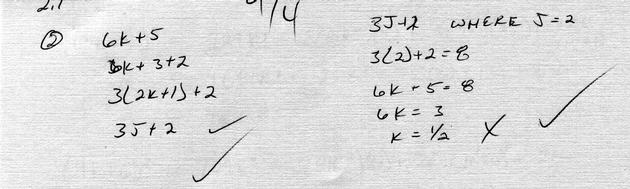 2.1
4/4
② 6k+5
6k+3+2
3(2k+1)+2
3J+2 ✓
✓
3J+2 WHERE J=2
3(2)+2=8
6k+5=8
6k=3
k=1/2 X ✓